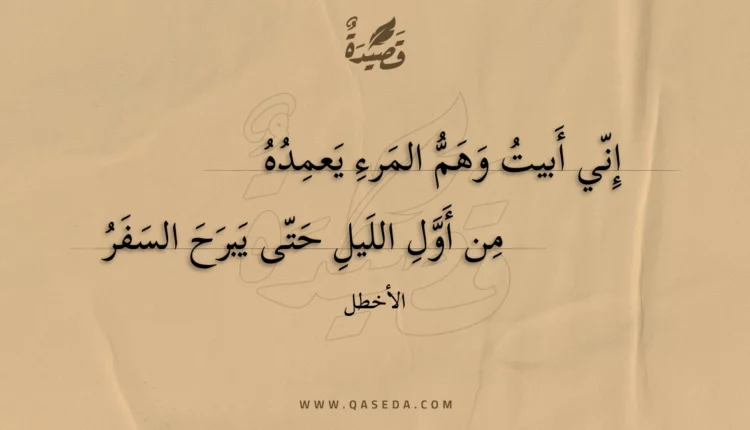 قَصِيْدَةٌ
إِنّي أَبيتُ وَهَمُّ المَرءِ يَعمِدُهُ
مِن أَوَّلِ اللَيلِ حَتّى يَبرَحَ السَفَرُ
الأخطل
WWW.QASEDA.COM